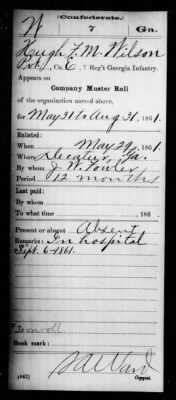 Confederate.
W 7 Ga.
Hugh F. M. Wilson
Pvt, Co. E, 7 Reg't Georgia Infantry.
Appears on
Company Muster Roll
of the organization named above,
for May 31 to Aug 31, 1861.
Enlisted:
When May 29, 1861.
Where Decatur, Ga.
By whom J. W. Fowler
Period 12 months
Last paid:
By whom
To what time , 186 .
Present or absent Absent
Remarks: In hospital
Sept. 6-1861.
Book mark:
(642) Copyist.